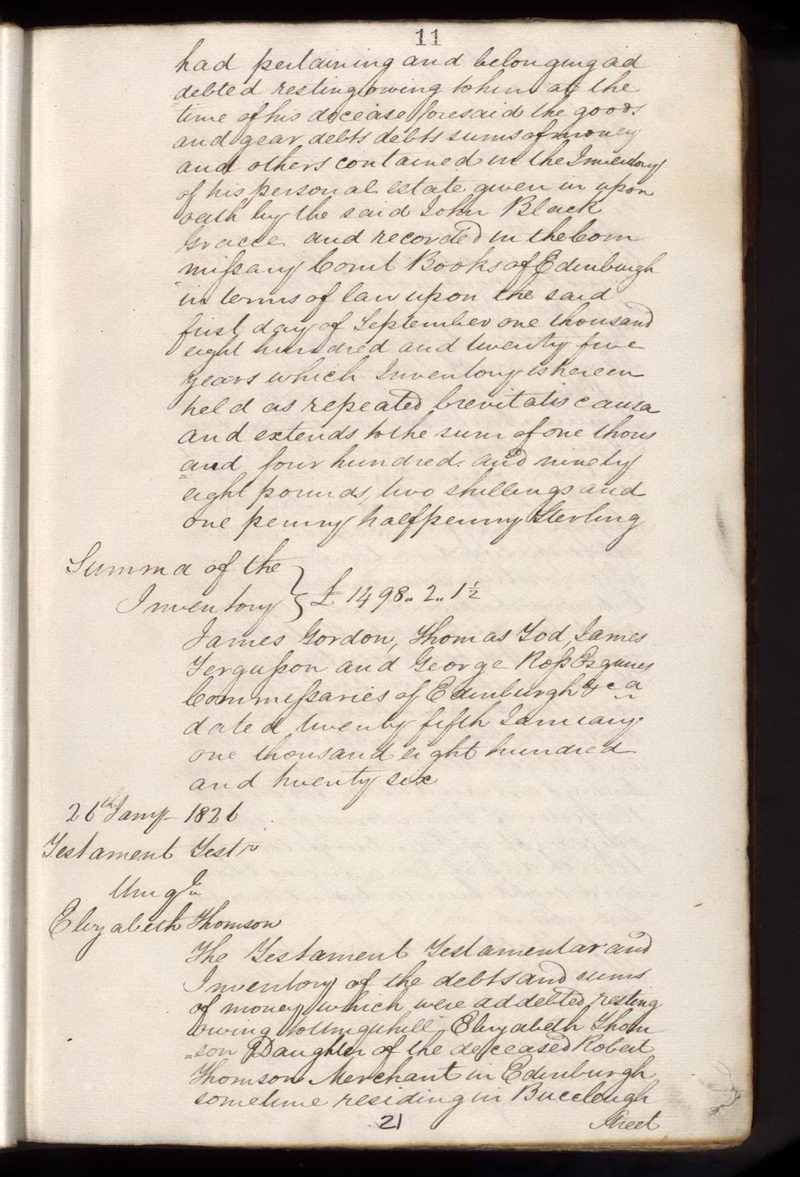 11
had pertaining and belonging ad
debted resting owing to him at the
time of his decease foresaid the goods
and gear debts debts sums of money
and others contained in the Inventory
of his personal estate given in upon
oath by the said John Black
Gracie and recorded in the Com
missary Court Books of Edinburgh
in terms of law upon the said
first day of September one thousand
eight hundred and twenty five
years which Inventory is herein
held as repeated brevitatis causa
and extends to the sum of one thous
and four hundred and ninety
eight pounds, two shillings and
one penny halfpenny Sterling
Summa of the
Inventory } £ 1498„ 2„ 1½
James Gordon, Thomas Tod, James
Fergusson and George Ross Esquires
Commissaries of Edinburgh &ca
dated twenty fifth January
one thousand eight hundred
and twenty six
26th Jany 1826
Testament Testr
Umqll
Elizabeth Thomson
The Testament Testamentar and
Inventory of the debts and sums
of money which were addebted resting
owing to Umquhill Elizabeth Thom
son Daughter of the deceased Robert
Thomson Merchant in Edinburgh
sometime residing in Buccleugh
Street
21